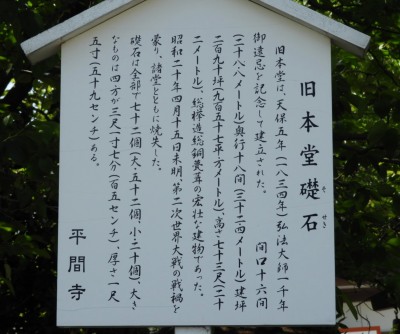 旧本堂礎石
そ せき
旧本堂は、天保五年(一八三四年)弘法大師一千年
御遠忌を記念して建立された。 間口十六間
(二十八・八メートル)奥行十八間(三十二・四メートル)、建坪
二百九十坪(九百五十七平方メートル)、高さ七十三尺(二十
二メートル)、総欅造総銅瓦葺の宏壮な建物であった。
昭和二十年四月十五日未明、第二次世界大戦の戦禍を
蒙り、諸堂とともに焼失した。
礎石は全部で七十二個(大・五十二個、小・二十個)、大き
なものは四方が三尺一寸七分(百五センチ)、厚さ一尺
五寸(五十九センチ)ある。
平間寺